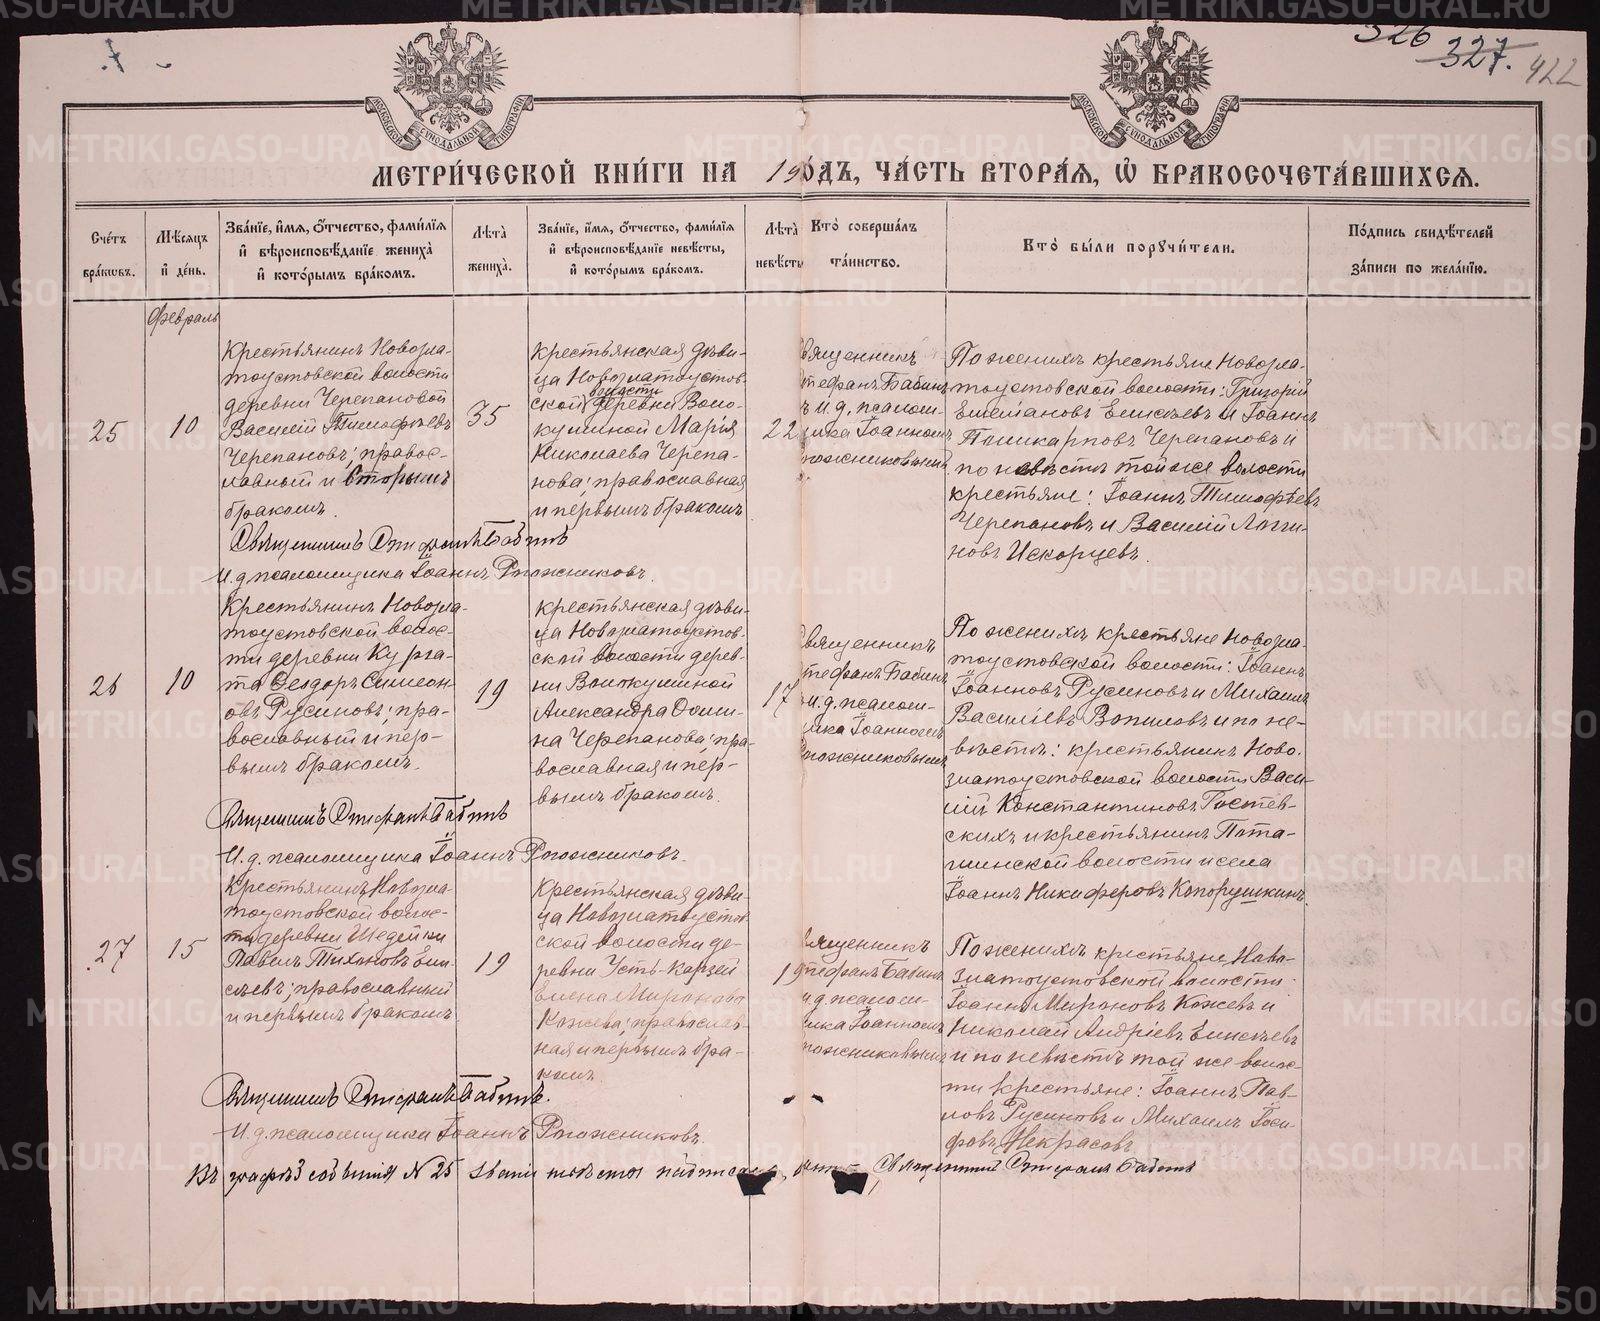 326
327.
422
МОСКОВСКОЙ СѴНОДАЛЬНОЙ ТИПОГРАФІИ
МОСКОВСКОЙ СѴНОДАЛЬНОЙ ТИПОГРАФІИ
МЕТРИ́ЧЕСКОЙ КНИ́ГИ НА 19 ОДЪ, ЧА́СТЬ ВТОРА́Я, Ѽ БРАКОСОЧЕТА́ВШИХСЯ.
Сче́тъ бра́ковъ.
Мѣ́сяцъ и де́нь.
Зва́нїе, и́мя, о́тчество, фами́лїя и вѣроисповѣ́данїе жениха̀ и кото́рымъ бра́комъ.
Лѣта̀ жениха̀.
Зва́нїе, и́мя, о́тчество, фами́лїя и вѣроисповѣ́данїе невѣ́сты, и кото́рымъ бра́комъ.
Лѣта̀ невѣ́сты
Кто̀ соверша́лъ та́инство.
Кто̀ бы́ли пору́чи́тели.
По́дпись свидѣ́телей за́писи по жела́нїю.
Февраль
25
10
Крестьянинъ Новозла-
тоустовской волости
деревни Черепановой
Василій Тимофѣевъ
Черепановъ; правос-
лавный и вторымъ
бракомъ.
35
крестьянская дѣви-
ца Новозлатоустов-
ской волости деревни Воло-
кушиной Марія
Николаева Черепа-
нова; православная
и первымъ бракомъ
22
вященникъ
тефанъ Бабинъ
ъ и. д. псалом-
щика Іоанномъ
ожниковымъ
По женихѣ крестьяне Новозла-
тоустовской волости: Григорій
Елисѣевъ и Іоаннъ
Поликарповъ Черепановъ и
по невѣстѣ той же волости
крестьяне: Іоаннъ Тимофѣевъ
Черепановъ и Василій Логги-
новъ Искорцевъ.
Священникъ Стефанъ Бабинъ
И. д. псаломщика Іоаннъ Рогожниковъ.
26
10
Крестьянинъ Новозла-
тоустовской волос-
ти деревни Курга-
та Ѳеодоръ Симеон-
овъ Русиновъ; пра-
вославный и пер-
вымъ бракомъ.
19
крестьянская дѣви-
ца Новозлатоустов-
ской волости дерев-
ни Волокушиной
Александра Ѳоми-
на Черепанова; пра-
вославная и пер-
вымъ бракомъ.
17
вященникъ
тефанъ Бабинъ
и. д. псалом-
щика Іоанномъ
ожниковымъ
По женихѣ крестьяне Новозла-
тоустовской волости: Іоаннъ
Іоанновъ Русиновъ и Михаилъ
Василіевъ Вопиловъ и по не-
вѣстѣ: крестьянинъ Ново-
златоустовской волости Васи-
лій Константиновъ Гостев-
скихъ и крестьянинъ Пота-
шинской волости и села
Іоаннъ Никифоровъ Копорушкинъ.
Священникъ Стефанъ Бабинъ
И. д. псаломщика Іоаннъ Рогожниковъ.
27
15
Крестьянинъ Новозла-
тоустовской волос-
ти деревни Шедейки
Павелъ Тихоновъ Ели-
сѣевъ; православный
и первымъ бракомъ.
19
Крестьянская дѣви-
ца Новозлатоустов-
ской волости де-
ревни Усть-Карзей
Елена Миронова
Кожева; православ-
ная и первымъ бра-
комъ.
19
вященникъ
тефанъ Бабинъ
и. д. псалом-
щика Іоанномъ
ожниковымъ
По женихѣ крестьяне Ново-
златоустовской волости:
Іоаннъ Мироновъ Кожевъ и
Николай Андріевъ Елисѣевъ
и по невѣстѣ той же волос-
ти крестьяне: Іоаннъ Пав-
ловъ Русиновъ и Михаилъ Іоси-
фовъ Некрасовъ
Священникъ Стефанъ Бабинъ.
И. д. псаломщика Іоаннъ Рогожниковъ.
Въ графѣ 3 событія № 25 Священникъ Стефанъ Бабинъ
METRIKI.GASO-URAL.RU